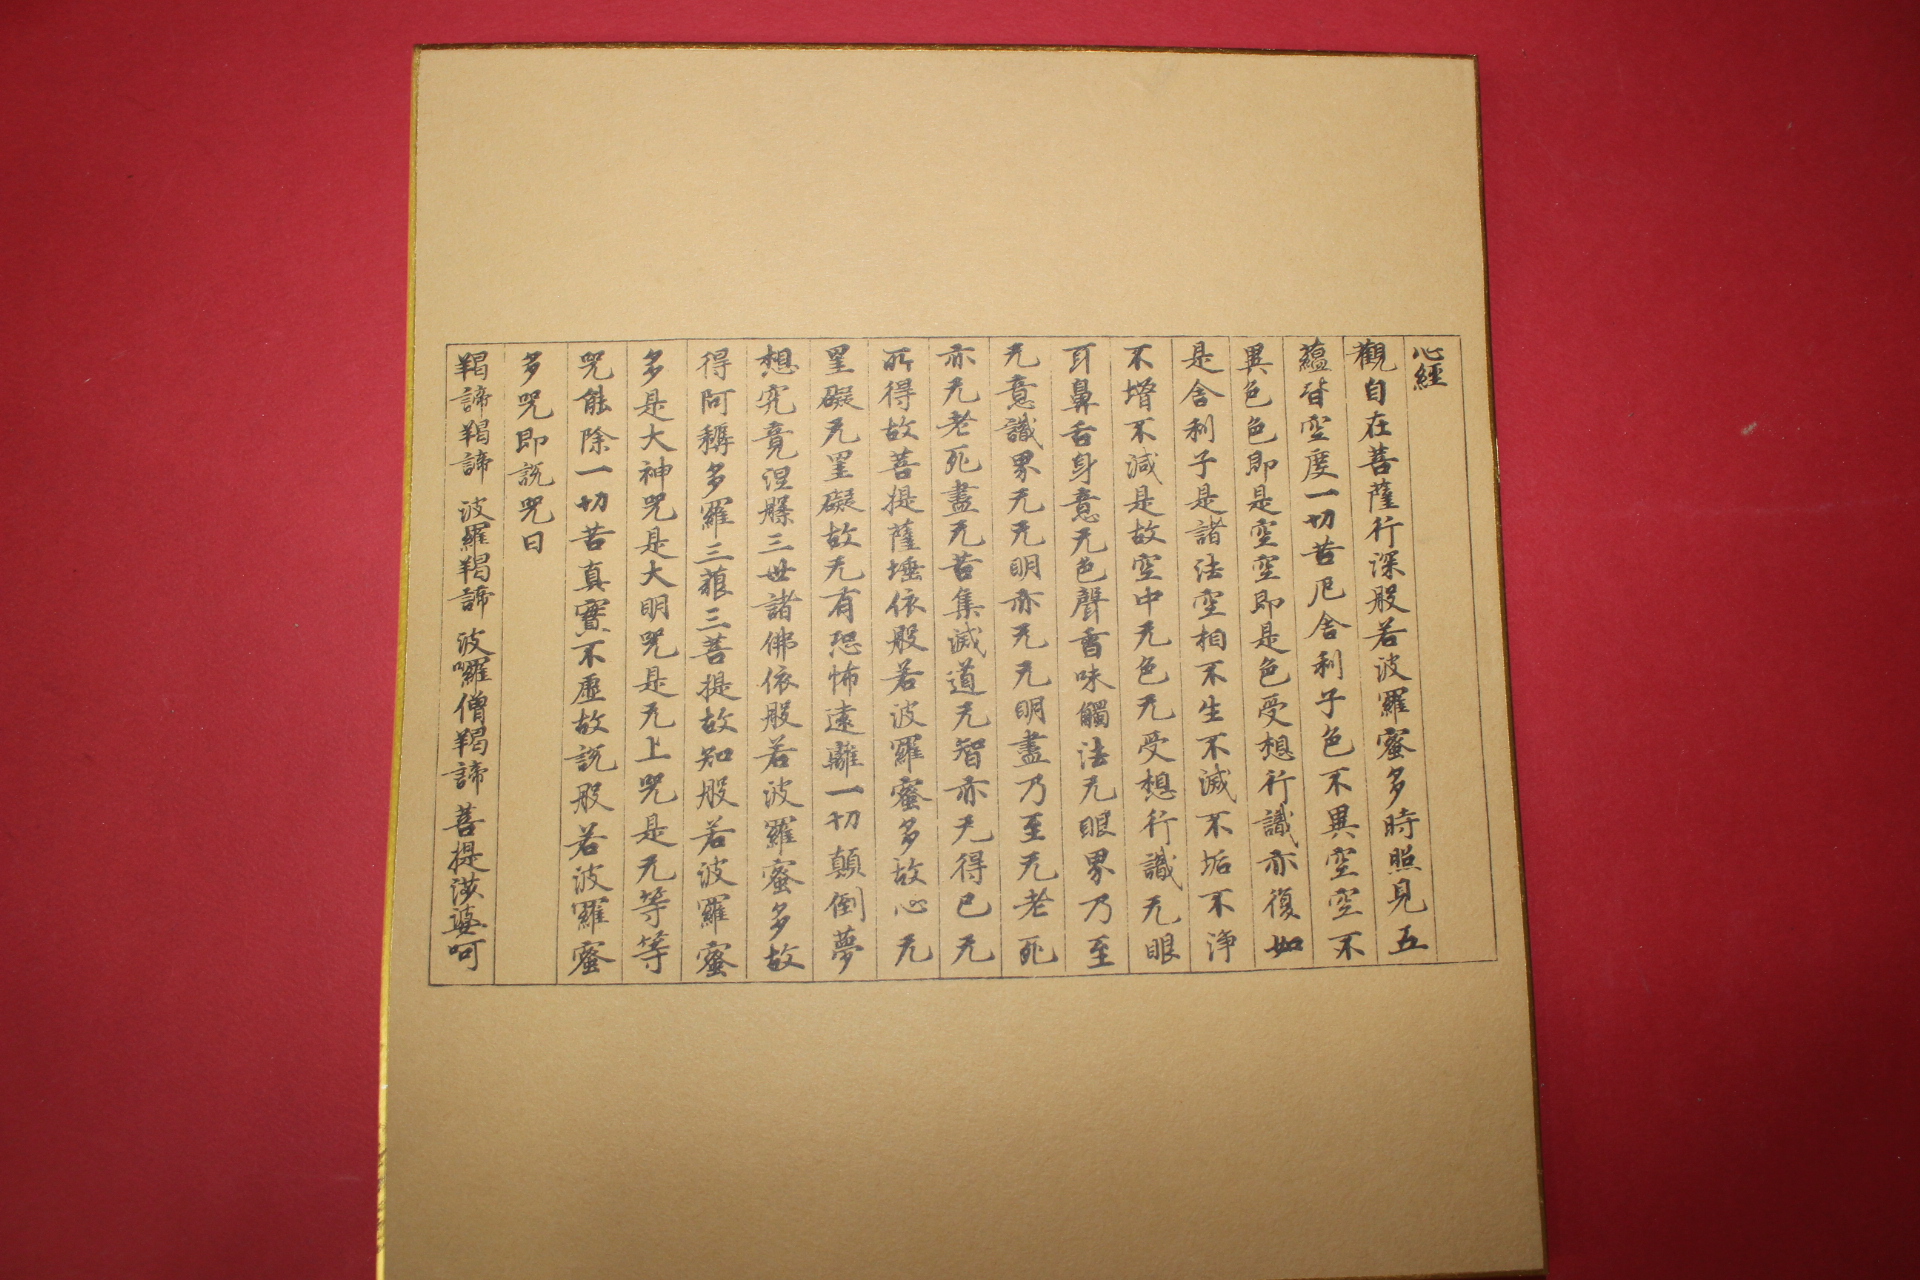 心經
觀自在菩薩行深般若波羅蜜多時照見五
蘊皆空度一切苦厄舍利子色不異空空不
異色色即是空空即是色受想行識亦復如
是舍利子是諸法空相不生不滅不垢不淨
不增不減是故空中无色无受想行識无眼
耳鼻舌身意无色聲香味觸法无眼界乃至
无意識界无无明亦无无明盡乃至无老死
亦无老死盡无苦集滅道无智亦无得已无
所得故菩提薩埵依般若波羅蜜多故心无
罣礙无罣礙故无有恐怖遠離一切顛倒夢
想究竟涅槃三世諸佛依般若波羅蜜多故
得阿耨多羅三藐三菩提故知般若波羅蜜
多是大神咒是大明咒是无上咒是无等等
咒能除一切苦真實不虛故說般若波羅蜜
多咒即說咒曰
羯諦羯諦 波羅羯諦 波囉僧羯諦 菩提娑婆呵